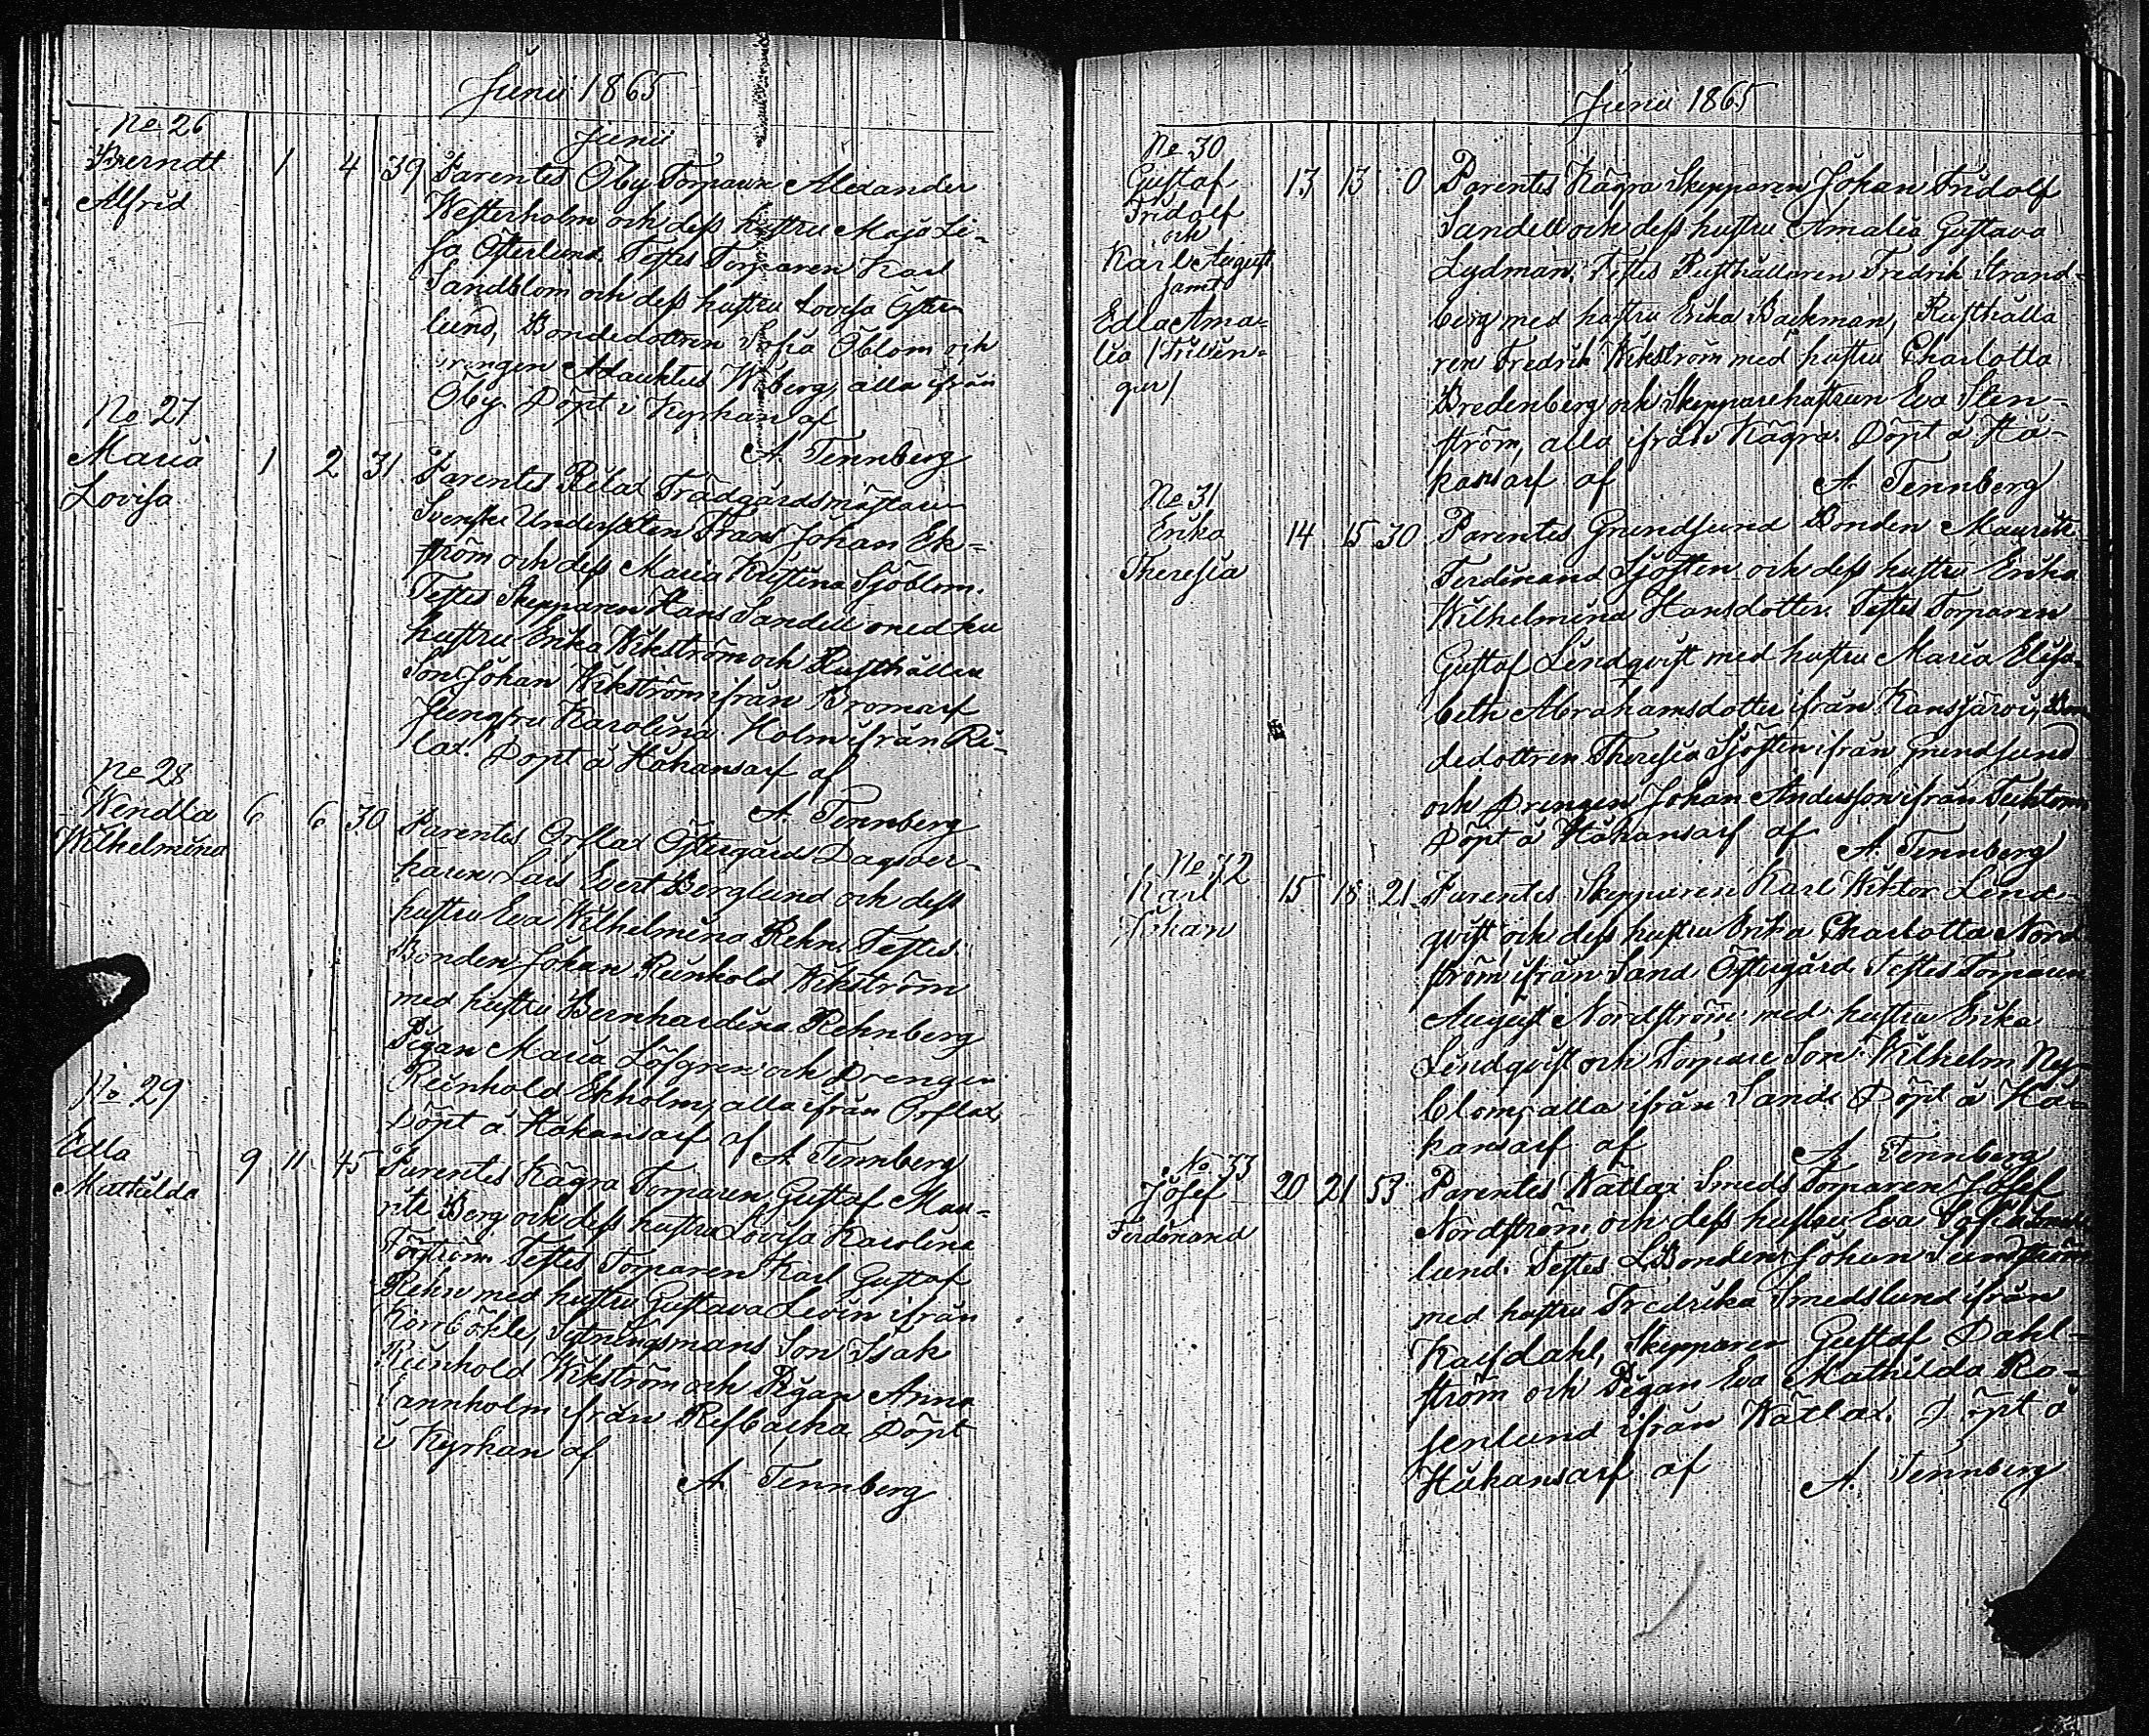 Junii 1865
Junii
No 26
Berndt 1 4 39 Parentes Öby Torparen Alexander
Alfrid
Westerholm och dess hustru Maja Li-
sa Österlund. Testes Torparen Karl
Sandblom och dess hustru Lovisa Öster
lund, Bondedottren Sofia Öblom och
drengen Adauktus Wiberg, alla ifrån
Öby. Döpt i Kyrkan af
A. Tennberg
No 27
Maria 1 2 31 Parentes Rilax Trädgårdsmästaren
Lovisa
Svenske Undersåten Frans Johan Ek-
ström och dess Maria Kristina Sjöblom.
Testes Skepparen Hans Sandell med hu
hustru Erika Wikström och Rusthållare
Son Johan Wikström ifrån Bromarf
Jungfru Karolina Holm ifrån Ri-
lax. Döpt å Håkansarf af
A. Tennberg
No 28
Wendla 6 6 30 Parentes Orslax Östergårds Dagsver-
Wilhelmina
karen Lars Evert Berglund och dess
hustru Eva Wilhelmina Rehn. Testes
Bonden Johan Reinhold Wikström
med hustru Bernhardina Rehnberg
Pigan Maria Löfgren och Drengen
Reinhold Ekholm, alla ifrån Orslax,
Döpt å Håkansarf af A. Tennberg
No 29
Edla 9 11 45 Parentes Kägra Torparen Gustaf Mau-
Mathilda
ritz Berg och dess hustru Lovisa Karolina
Testes Torparen Karl Gustaf
Rehn med hustru Gustava Levin ifrån
Sytningsmans Son Isak
Reinhold Wikström och Pigan Anna
Tannholm ifrån Refbacka Döpt
i Kyrkan af
A. Tennberg
Junii 1865
No 30
Gustaf 13 13 0 Parentes Kägra Skepparen Johan Fridolf
Fridolf
och
Karl August
samt
Edla Ama-
lia /Trillin-
gar/
Sandell och dess hustru Amalia Gustava
Lydman. Testes Rusthållaren Fredrik Strand-
berg med hustru Erika Backman, Rusthålla
ren Fredrik Wikström med hustru Charlotta
Bredenberg och Skepparehustrun Eva Sten-
ström, alla ifrån Kägra. Döpt å Hå-
kansarf af A. Tennberg
No 31
Erika 14 15 30 Parentes Grundsund Bonden Mauritz
Theresia
Ferdinand Sjösten och dess hustru Erika
Wilhelmina Hansdotter. Testes Torparen
Gustaf Lindqvist med hustru Maria Elisa-
beth Abrahamsdotter ifrån Kansjärvi, Bon
dedottren Theresia Sjösten ifrån Grundsund
och Drengen Johan Andersson ifrån
Döpt å Håkansarf af A. Tennberg
No 32
Karl 15 18 21 Parentes Skepparen Karl Wiktor Lind-
Johan
qvist och dess hustru Erika Charlotta Nord
ström ifrån Sand Östergård. Testes Torparen
August Nordström med hustru Erika
Lindqvist och Torpare Son Wilhelm Ny-
blom, alla ifrån Sand. Döpt å Hå-
kansarf af A. Tennberg
No 33
Josef 20 21 53 Parentes Wättlax Smeds Torparen Josef
Ferdinand
Nordström och dess hustru Eva Sofia
lund. Testes L.Bonden Johan Sundström
med hustru Fredrika Smedslund ifrån
Karsdahl, Skepparen Gustaf Dahl-
ström och Pigan Eva Mathilda Ro-
senlund ifrån Wättlax. Döpt å
Håkansarf af A. Tennberg